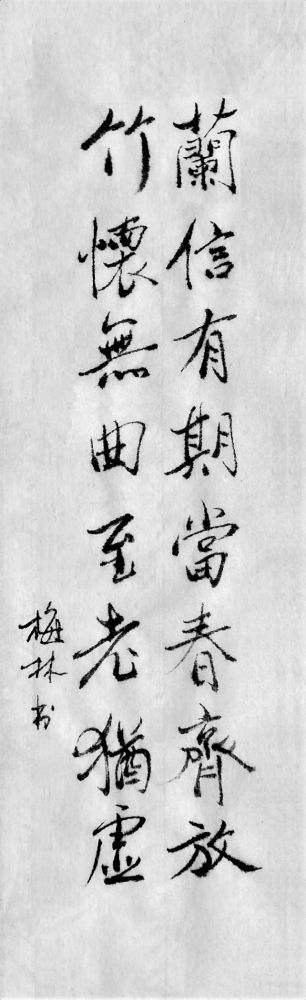 蘭信有期當春齊放
竹懷無曲至老猶虛
梅林书